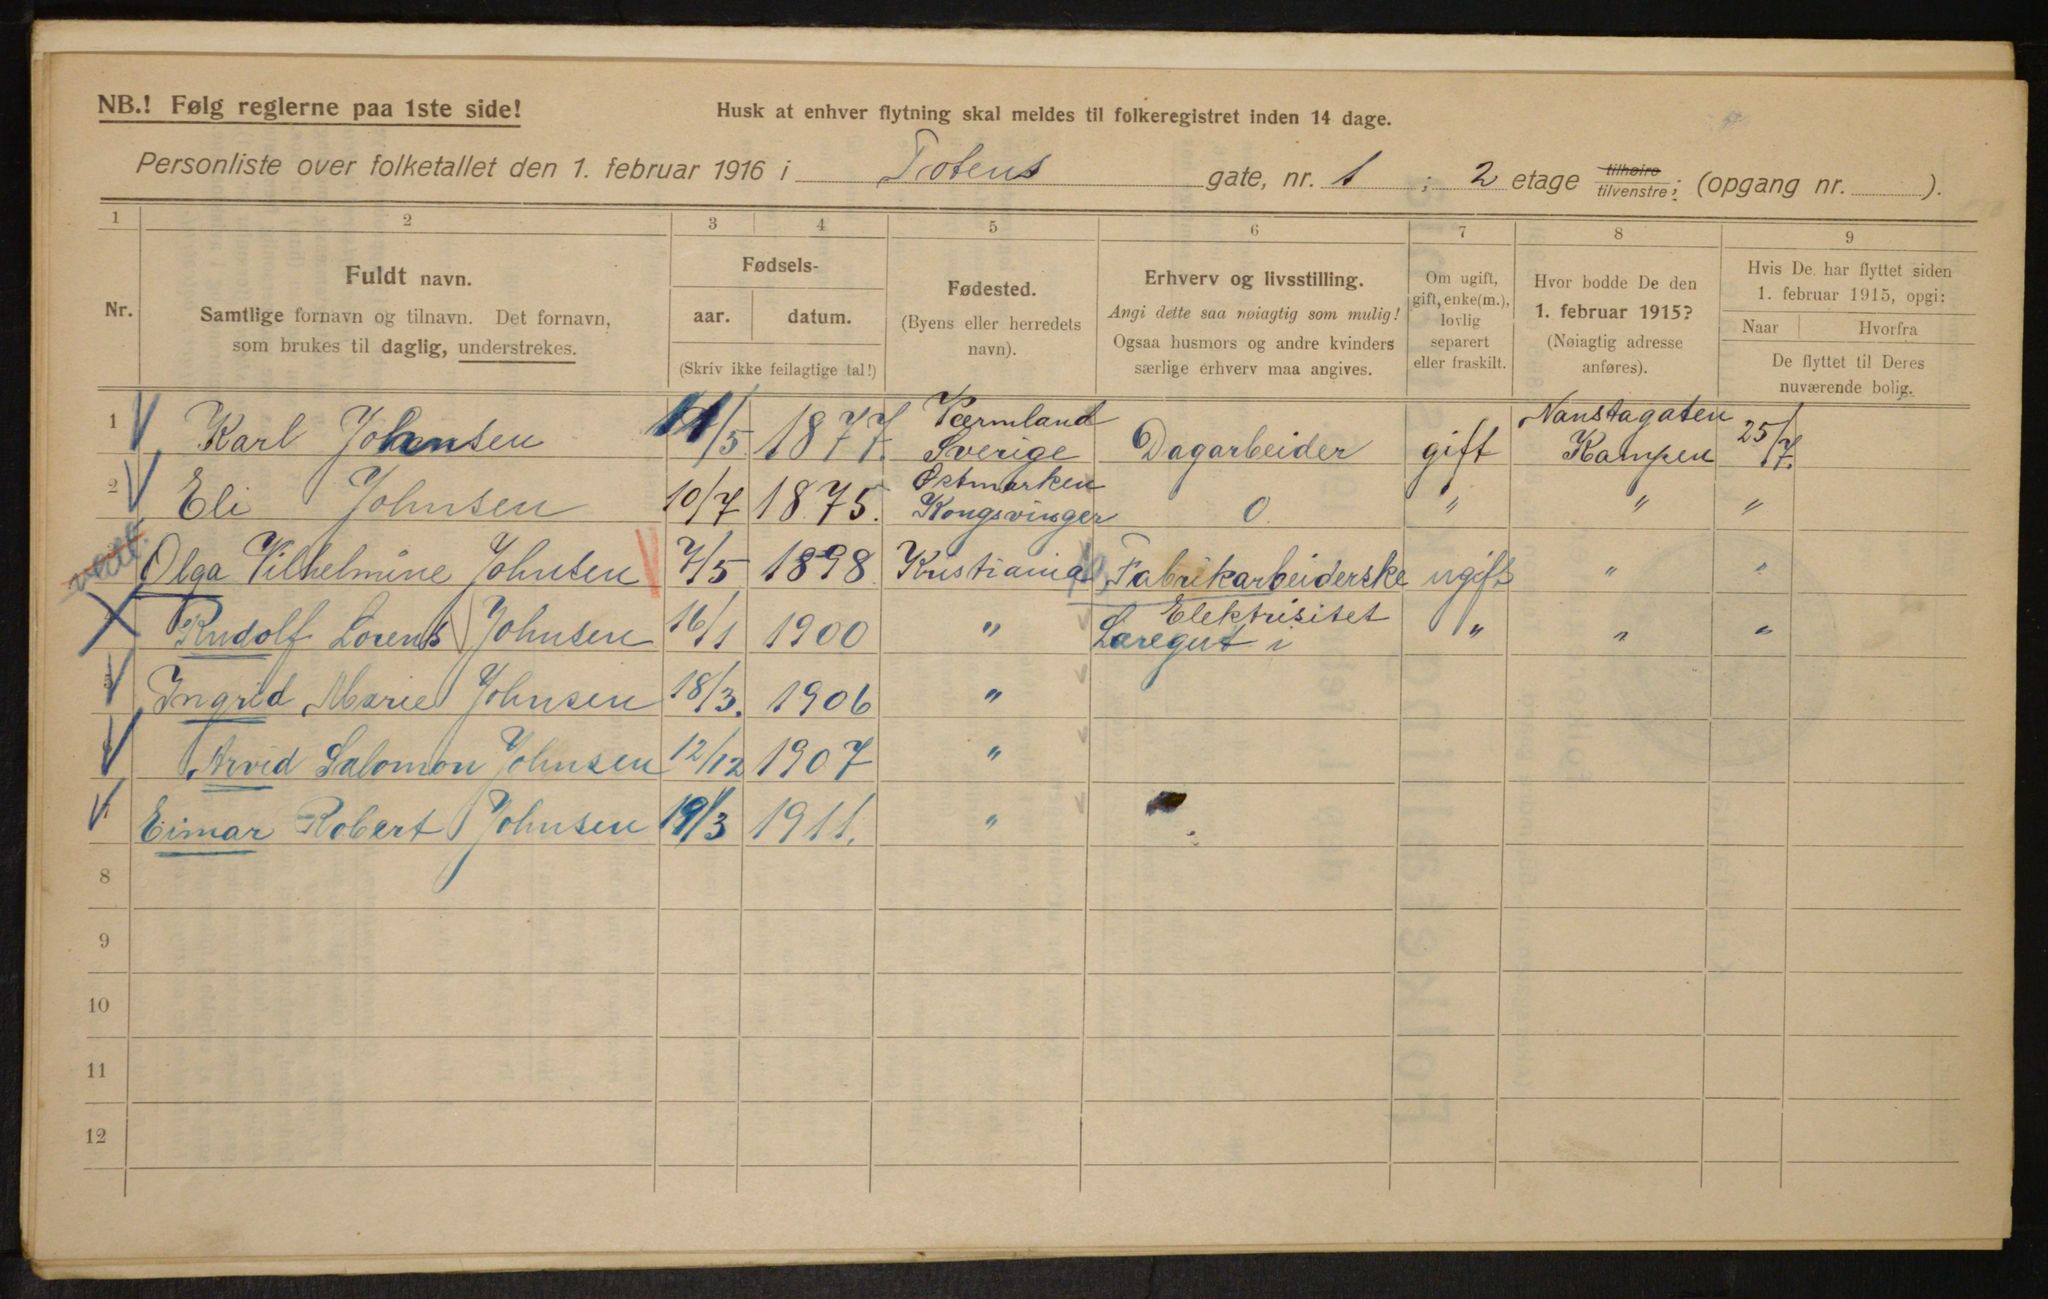 NB.! Følg reglerne paa 1ste side!
Husk at enhver flytning skal meldes til folkeregistret inden 14 dage.
Personliste over folketallet den 1. februar 1916 i Totens gate, nr. 1 ; 2 etage tilhøire tilvenstre; (opgang nr. ).
1 2 3 4 5 6 7 8 9
Nr.
Fuldt navn.
Samtlige fornavn og tilnavn. Det fornavn,
som brukes til daglig, understrekes.
Fødsels-
aar. datum.
(Skriv ikke feilagtige tal!)
Fødested.
(Byens eller herredets
navn).
Erhverv og livsstilling.
Angi dette saa nøiagtig som mulig!
Ogsaa husmors og andre kvinders
særlige erhverv maa angives.
Om ugift,
gift, enke(m.),
lovlig
separert
eller fraskilt.
Hvor bodde De den
1. februar 1915?
(Nøiagtig adresse
anføres).
Hvis De har flyttet siden
1. februar 1915, opgi:
Naar Hvorfra
De flyttet til Deres
nuværende bolig.
1 Karl Johnsen 11/5 1877. Værmland Sverige Dagarbeider gift Nanstagaten Kampen 25/7.
2 Eli Johnsen 10/7 1875. Østmarken Kongsvinger 0 " " "
Olga Vilhelmine Johnsen 7/5 1898 Kristiania Fabrikarbeiderske ugift " "
Rudolf Lorens Johnsen 16/1 1900 " Læregut i Elektrisitet " " "
5 Ingrid Marie Johnsen 18/3. 1906 "
Arvid Salomon Johnsen 12/12 1907 "
Eimar Robert Johnsen 19/3 1911. "
8
9
10
11
12